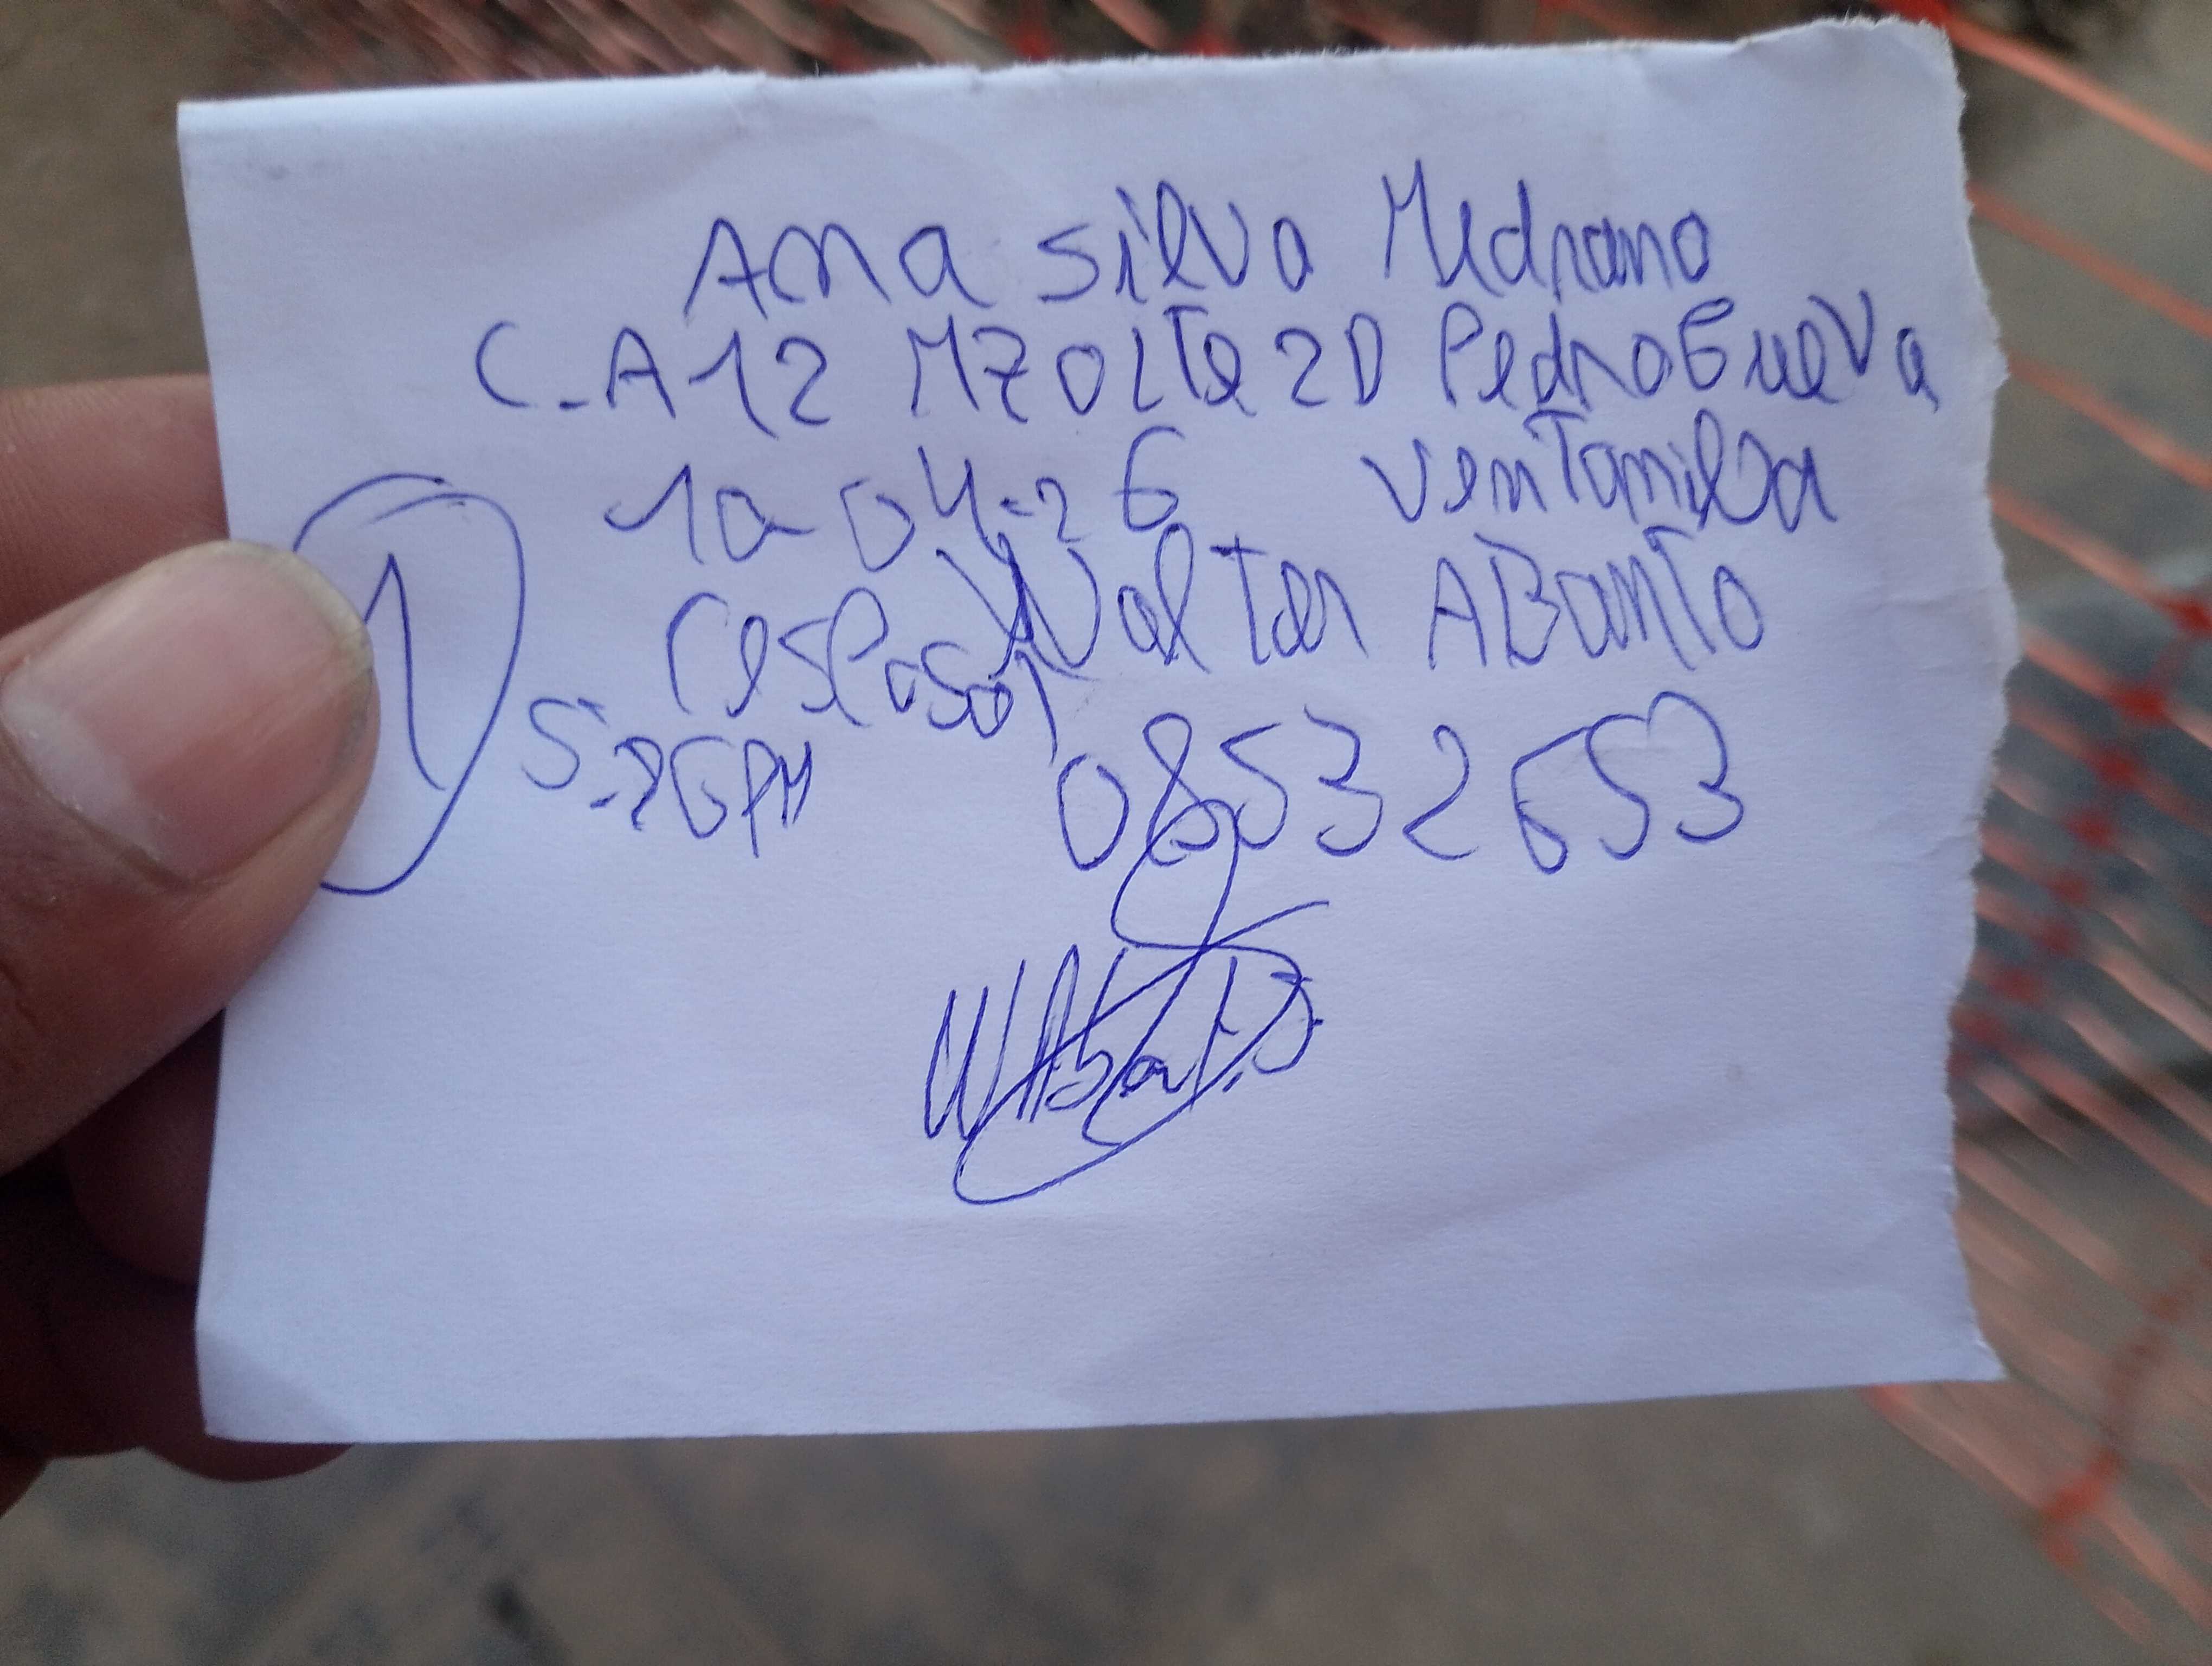 Ana Silva Medrano
C.A 12 MZ O LTe 20 Pedro Cueva
10-04-26 Ventanilla
(esposo) Walter ABanTo
1 5:26 PM 08532653